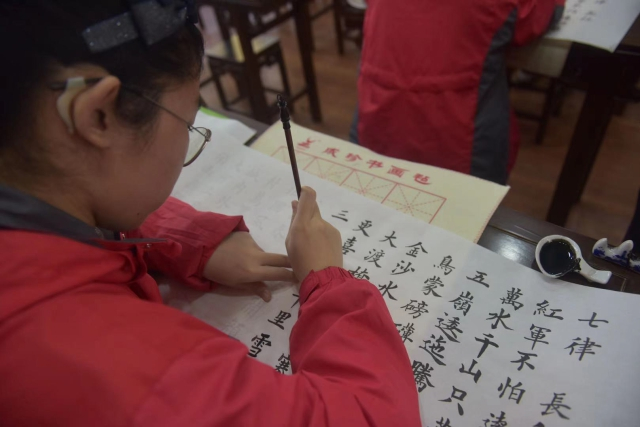 七律 長
紅軍不怕遠
萬水千山只
五嶺逶迤騰
烏蒙磅礴
金沙水
大渡橋
更喜
里雪
三
书画毡